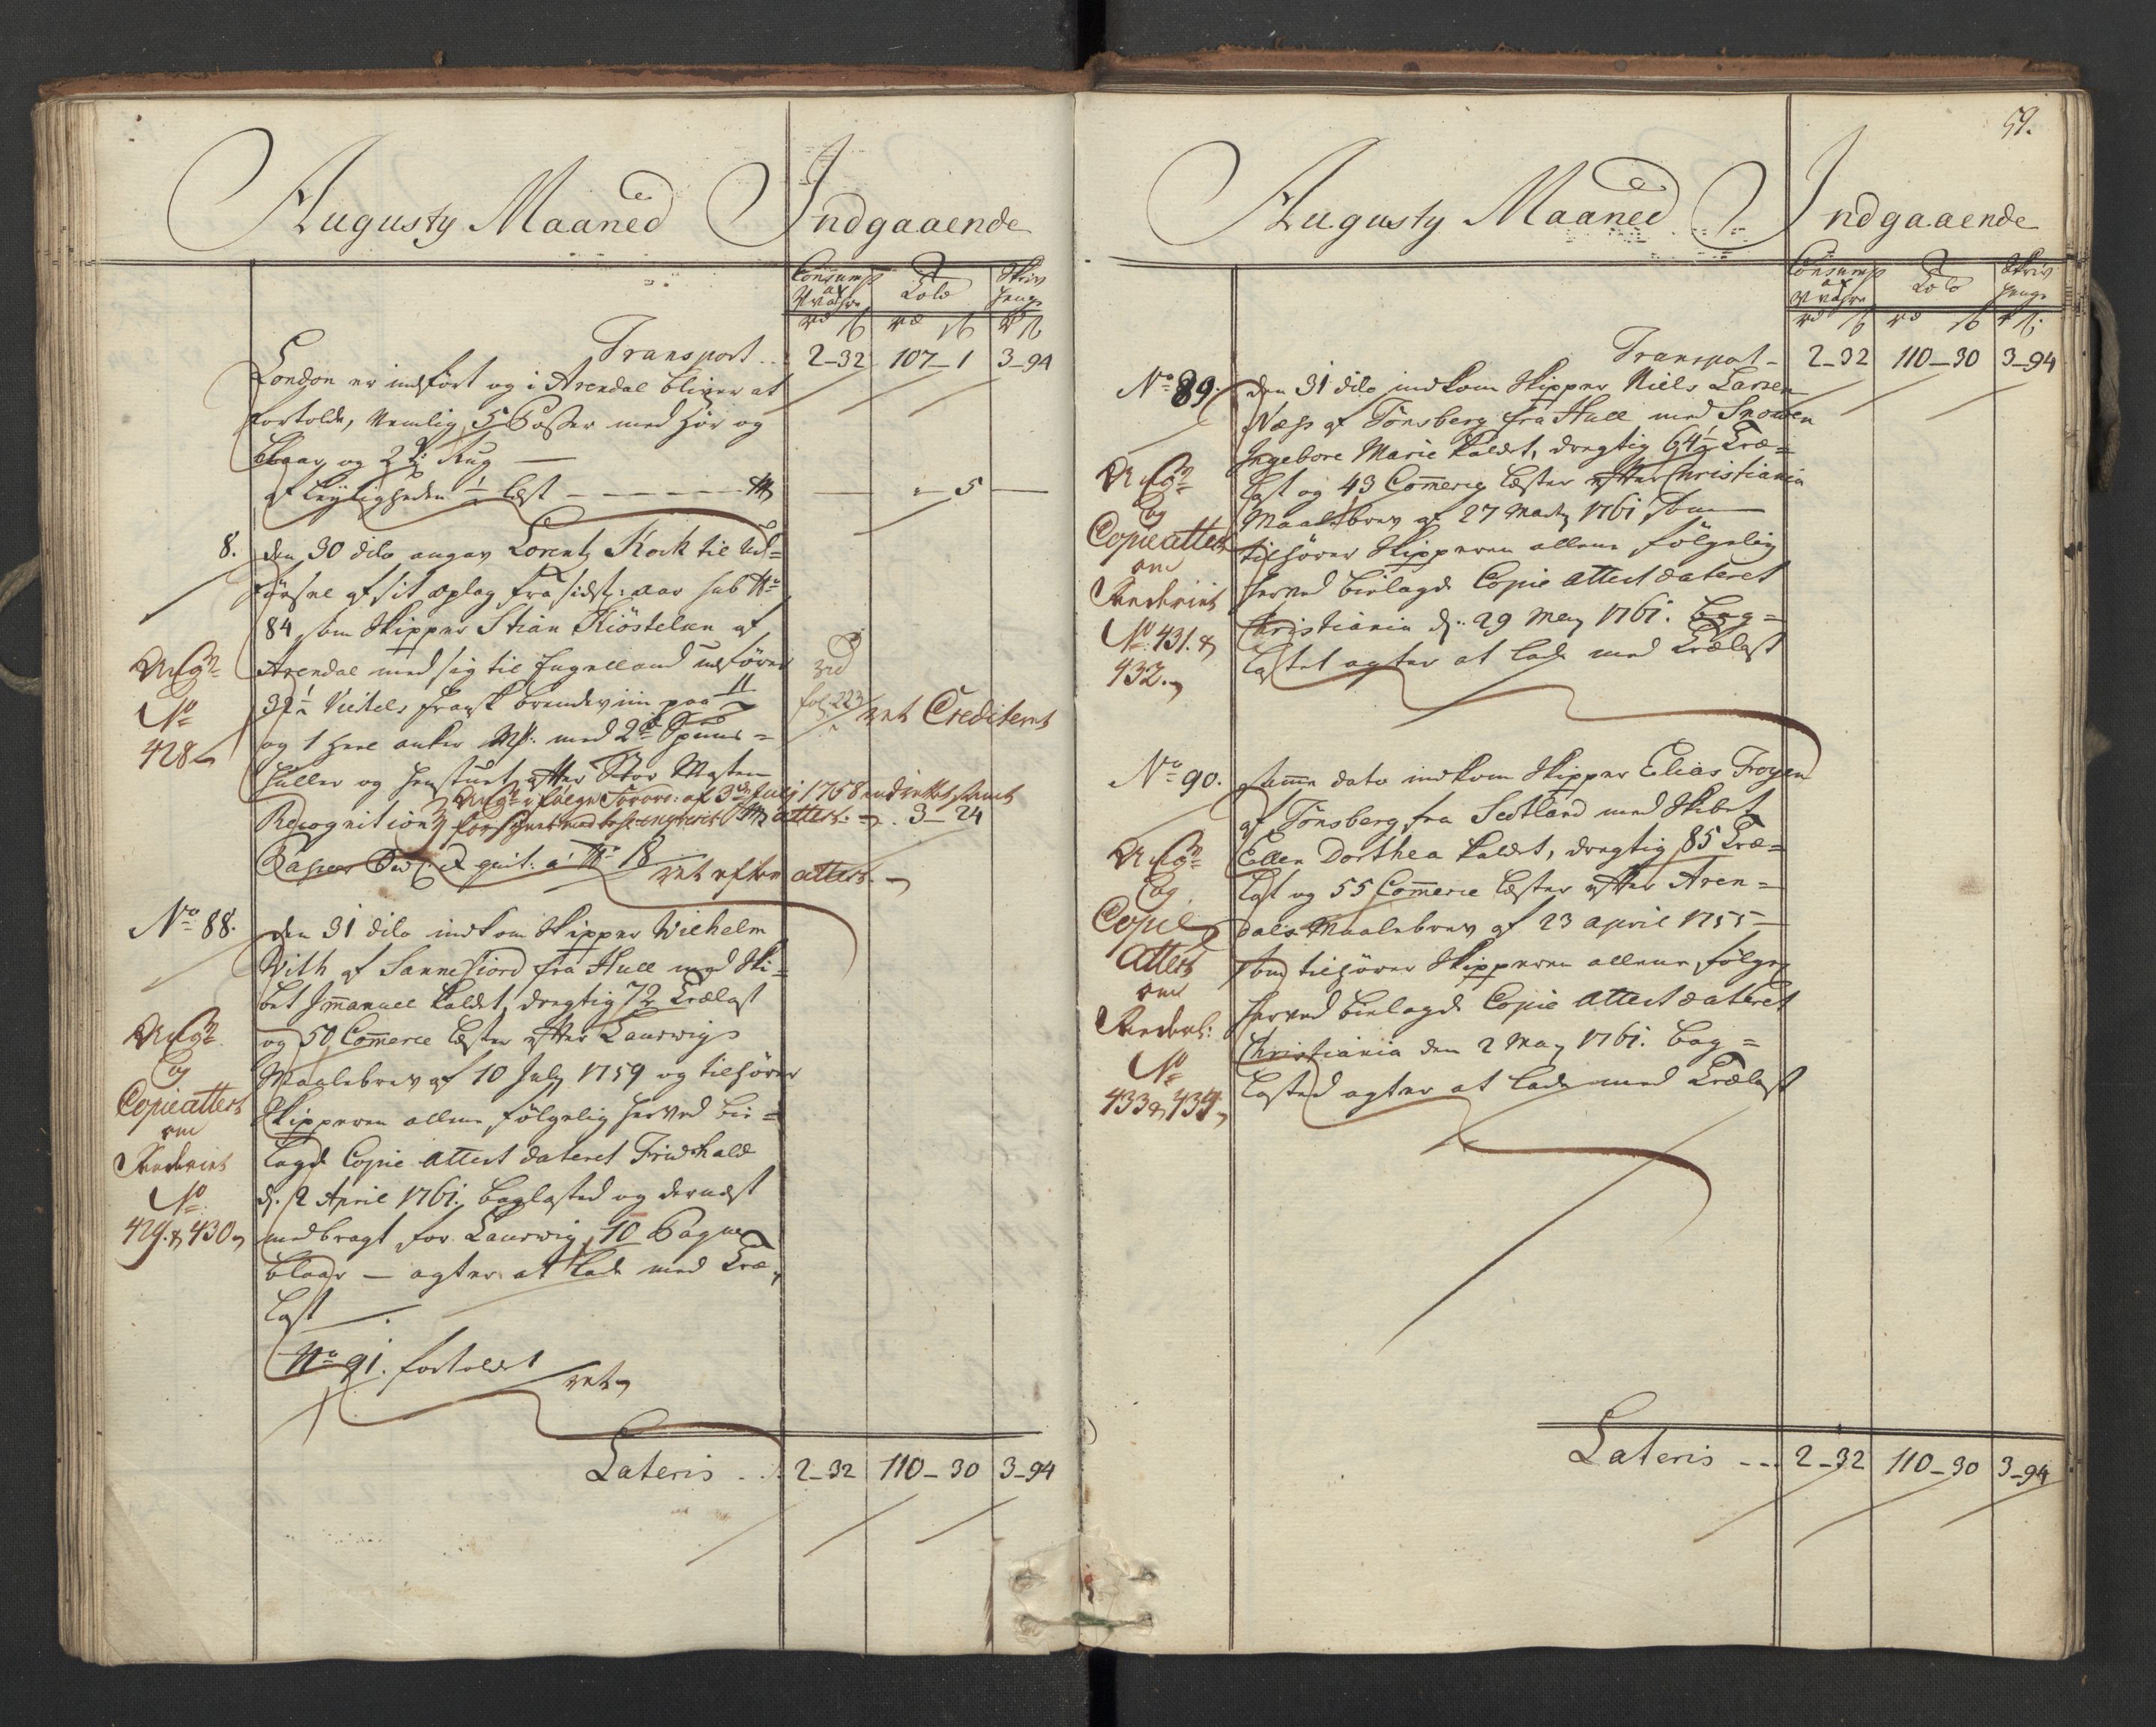 Augusty Maaned Indgaaende
Consumpt
af
Told
Skriv
penge
rd ß rd ß r ß
Transport 2-32 107-1 3-94
London er indført og i Arendal bliver at
fortolde, Nemlig 5 Passer med Hør og
blaar og 2 Rug
af Leyligheden 1/2 Lest - 5 -
8. den 30 dito angav Lorentz Kock til Ud=
førsel af sit oplag fra sidst: aar sub No
84 som Skipper Stian Kiøstelsen af
Arendal med sig til Engelland udfører
32 1/2 Viertels fransk brendeviin paa 11
vid
fol: 223
ret Crediteret
No
428
og 1 heel anker med 2de Spuns=
huller og henstuet efter Stor Masten
Recognition attest: 3-24
quit: a No 18 ret efter attest.
No 88. den 31 dito indkom Skipper Wilhelm
With af Sannefiord fra Hull med Ski=
bet Immanuel kaldet, drægtig 72 Trælast
og 50 Commerce Læster efter Laurwigs
Maalebrev af 10 July 1759 og tilhører
Skipperen allene følgelig herved bie=
lagde Copie Attest dateret Fridrhald
d. 2 April 1761. baglasted og dernæst
medbragt for Laurwig 10 Pagner
blaar - agter at lade med Træ=
last
og
Copie attest
om
Rederiet
No
429 & 430
No 91. fortoldet
ret
Lateris 2-32 110-30 3-94
59.
Augusty Maaned Indgaaende
Consumpt
af
Told
Skriv
penge
rd ß rd ß r ß
Transport 2-32 110-30 3-94
No 89. den 31 dito indkom Skipper Niels Larsen
Næss af Tønsberg fra Hull med Snowen
Ingebore Marie kaldet, drægtig 64 1/2 Træ=
last og 43 Commerce Læster efter Christiania
Maalebrev af 27 Marty 1761 som
tilhører Skipperen allene følgelig
herved bielagde Copie Attest dateret
Christiania d. 29 May 1761. Bag=
lastet agter at lade med Trælast
og
Copie attest
om
Rederiet
No 431 &
432.
No 90. samme dato indkom Skipper Elias Trogen
af Tønsberg fra Scotland med Skibet
Ellen Dorthea kaldet, drægtig 85 Træ=
last og 55 Commerce Læster efter Aren=
dals Maalebrev af 23 april 1755
som tilhører Skipperen allene, følgl
herved bielagde Copie Attest dateret
Christiania den 2 May 1761. bag=
lasted agter at lade med Trælast
og
Copie
Attest
om
Rederi:
No
433 & 434
Lateris 2-32 110-30 3-94